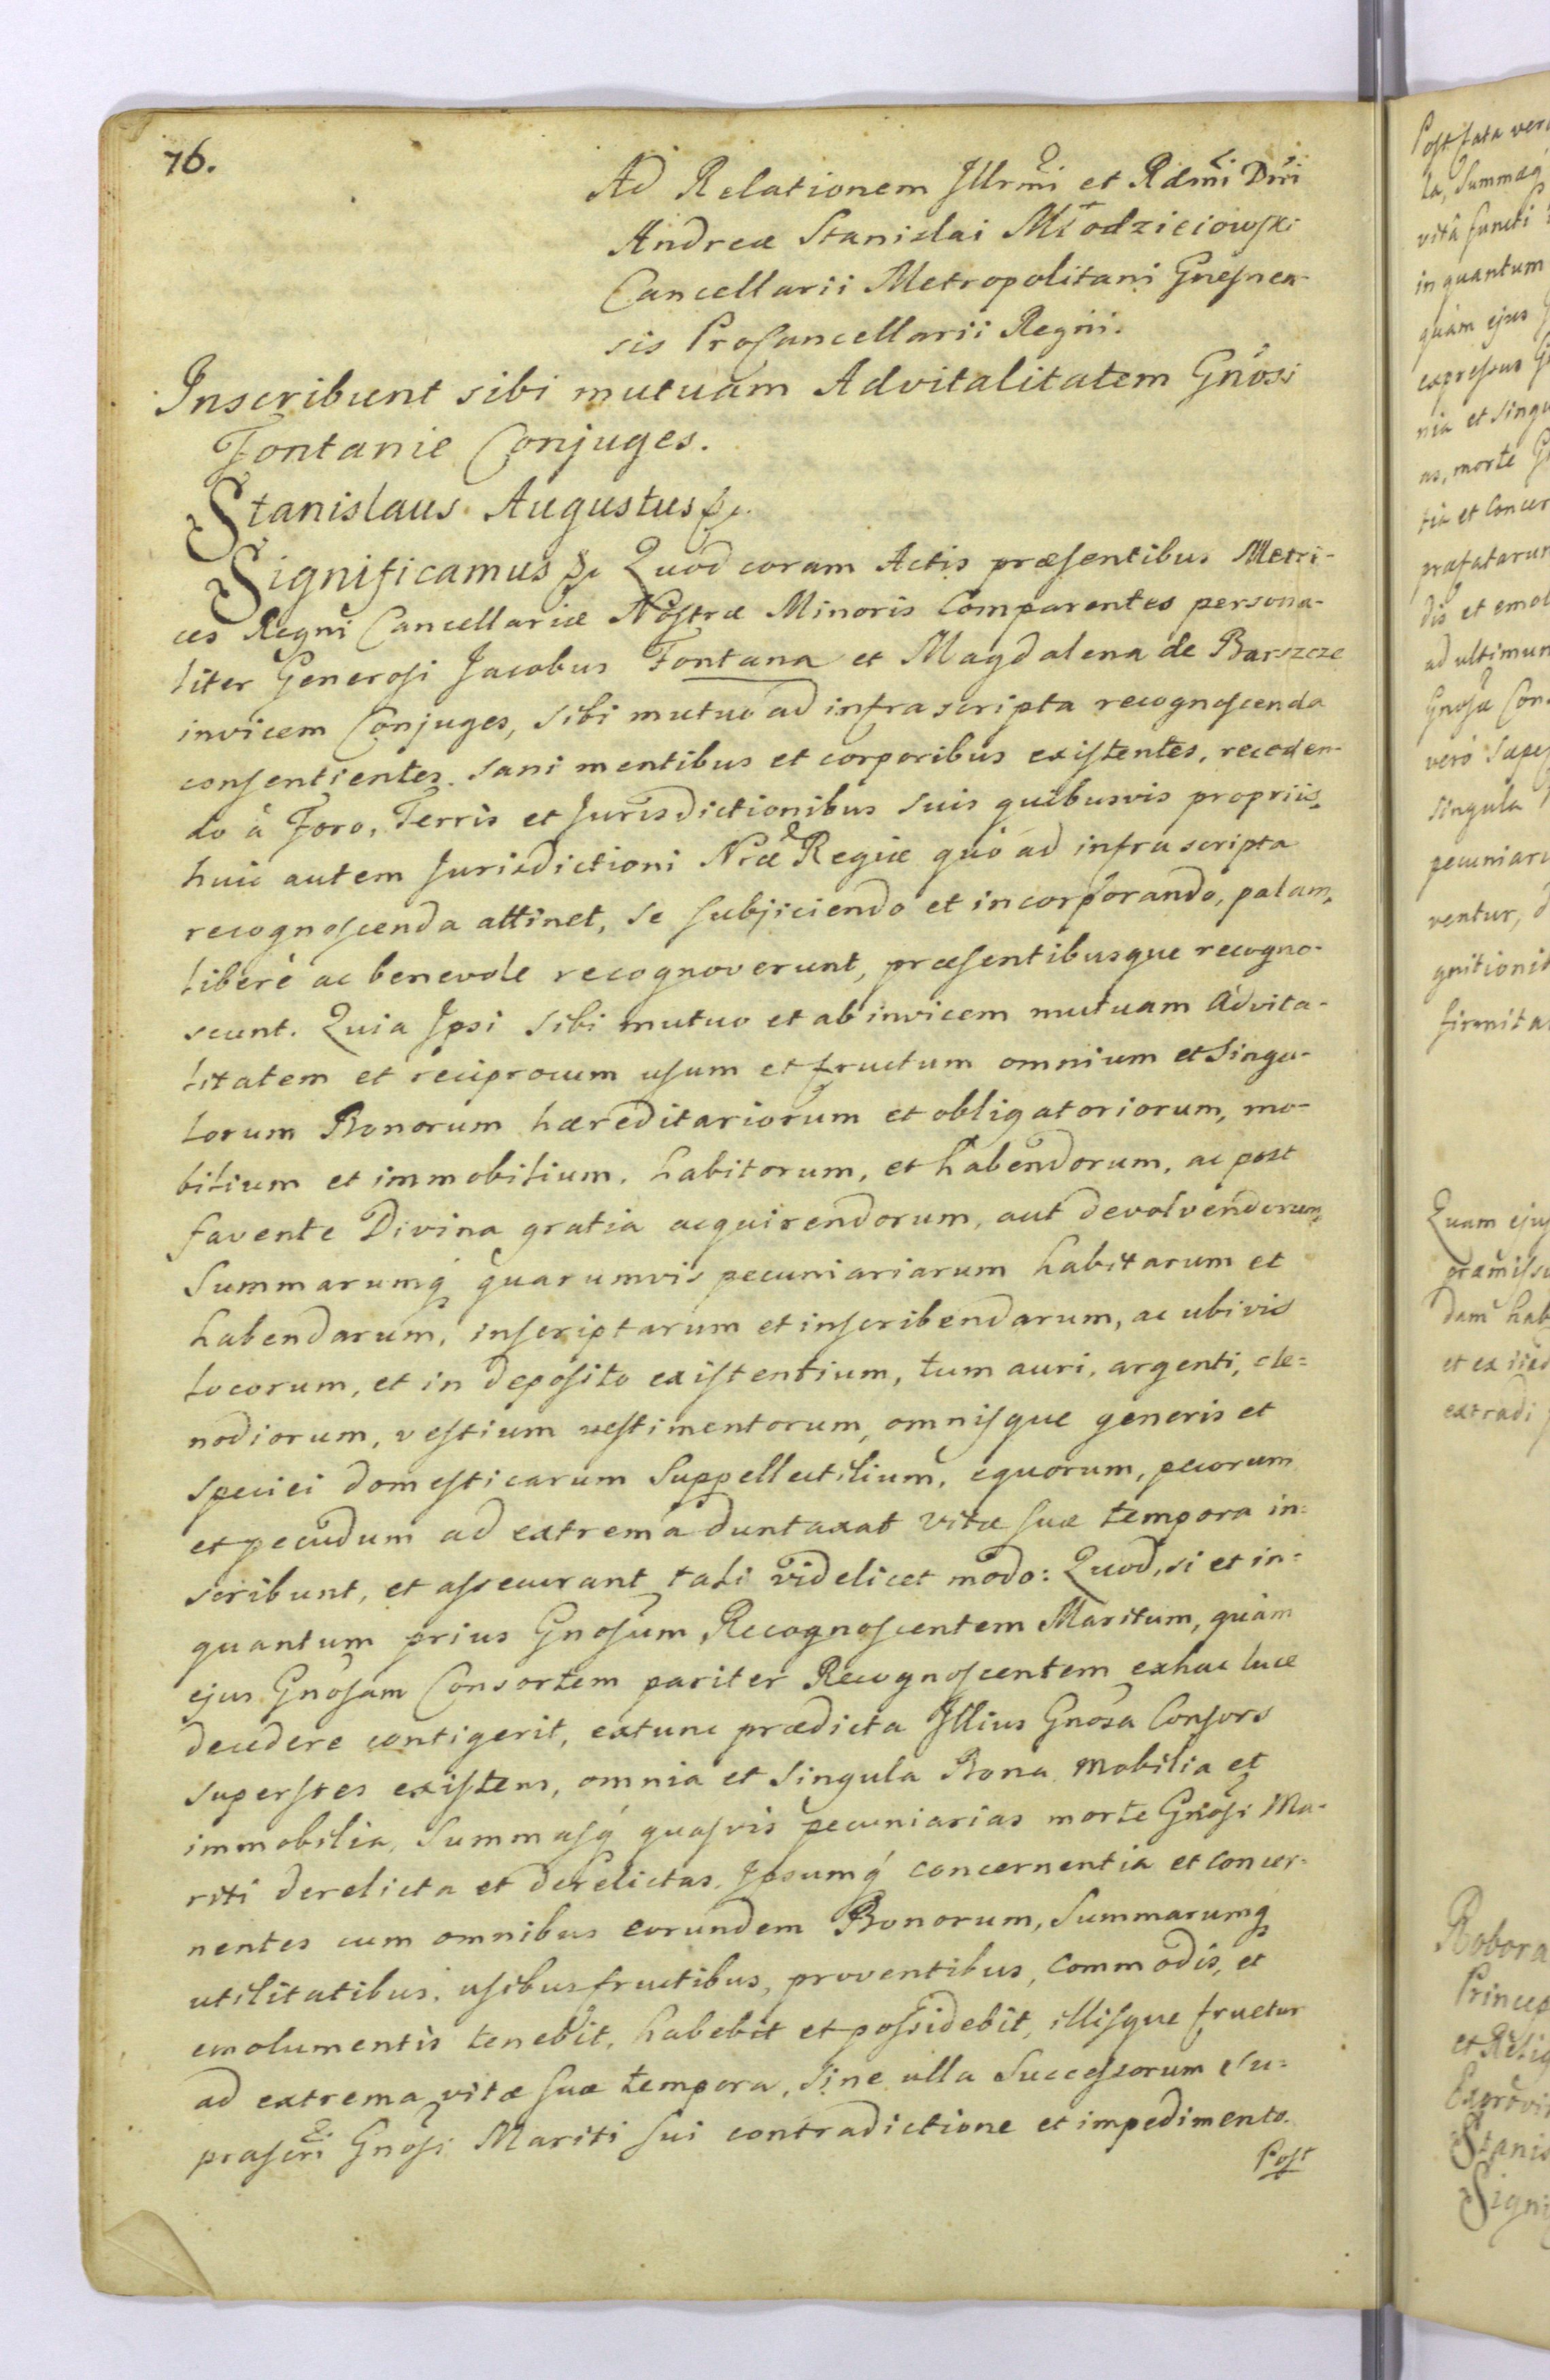 76.
Ad Relationem Illrmi et Rdmi Dni
Andreæ Stanislai Młodzieiowski
Cancellarii Metropolitani Gnesnen-
sis Procancellarii Regni.
Inscribunt sibi mutuam Advitalitatem Gnosi
Fontanie Conjuges.
Stanislaus Augustus &c.
Significamus &c Quod coram Actis præsentibus Metri-
ces Regni Cancellariæ Nostræ Minoris Comparentes persona-
liter Generosi Jacobus Fontana et Magdalena de Barszcze
invicem Conjuges, sibi mutuo ad infrascripta recognoscenda
consentientes. sani mentibus et corporibus existentes, receden-
do à Foro, Terris et Jurisdictionibus suis quibusvis propriis,
huic autem Jurisdictioni Nræ Regiæ quò ad infrascripta
recognoscenda attinet, se subjiciendo et incorporando, palam,
liberè ac benevole recognoverunt, præsentibusque recogno-
scunt. Quia Ipsi sibi mutuo et ab invicem mutuam Advita-
litatem et reciprocum usum et fructum omnium et singu-
lorum Bonorum hæreditariorum et obligatoriorum, mo-
bilium et immobilium, habitorum, et habendorum, ac post
favente Divina gratia acquirendorum, aut devolvendorum,
Summarumq́ quarumvis pecuniariarum habitarum et
habendarum, inscriptarum et inscribendarum, ac ubivis
locorum, et in deposito existentium, tum auri, argenti, cle=
nodiorum, vestium vestimentorum, omnisque generis et
speciei domesticarum Suppellectilium, equorum, pecorum
et pecudum ad extrema duntaxat vitæ suæ tempora in=
scribunt, et assecurant tali videlicet modo: Quod, si et in=
quantum prius Gnosum Recognoscentem Maritum, quàm
ejus Gnosam Consortem pariter Recognoscentem ex hac luce
decedere contigerit, extunc prædicta Illius Gnosa Consors
superstes existens, omnia et singula Bona mobilia et
immobilia, Summasq́ quasvis pecuniarias morte Gnosi Ma-
riti derelicta et derelictas, Ipsumq́ concernentia et concer-
nentes cum omnibus eorundem Bonorum, Summarumq́
utilitatibus, usibusfructibus, proventibus, commodis, et
emolumentis tenebit, habebit et possidebit, illisque fruetur
ad extrema vitæ suæ tempora, sine ulla Successorum su=
prascri Gnosi Mariti sui contradictione et impedimento.
Post
Post fata ver
la, Summaq́
vitâ functi
in quantum
quàm ejus
expressus G
nia et singu
as, morte G
tia et concer
præfatarum
dis et emol
ad ultimum
Gnosæ Con
verò super
singula
pecuniari
ventur,
gnitionis
firmita
Quam ejus
præmissa
dam hab
et ex iisd
extradi
Robora
Princep
et Relig
Stanis
Signi